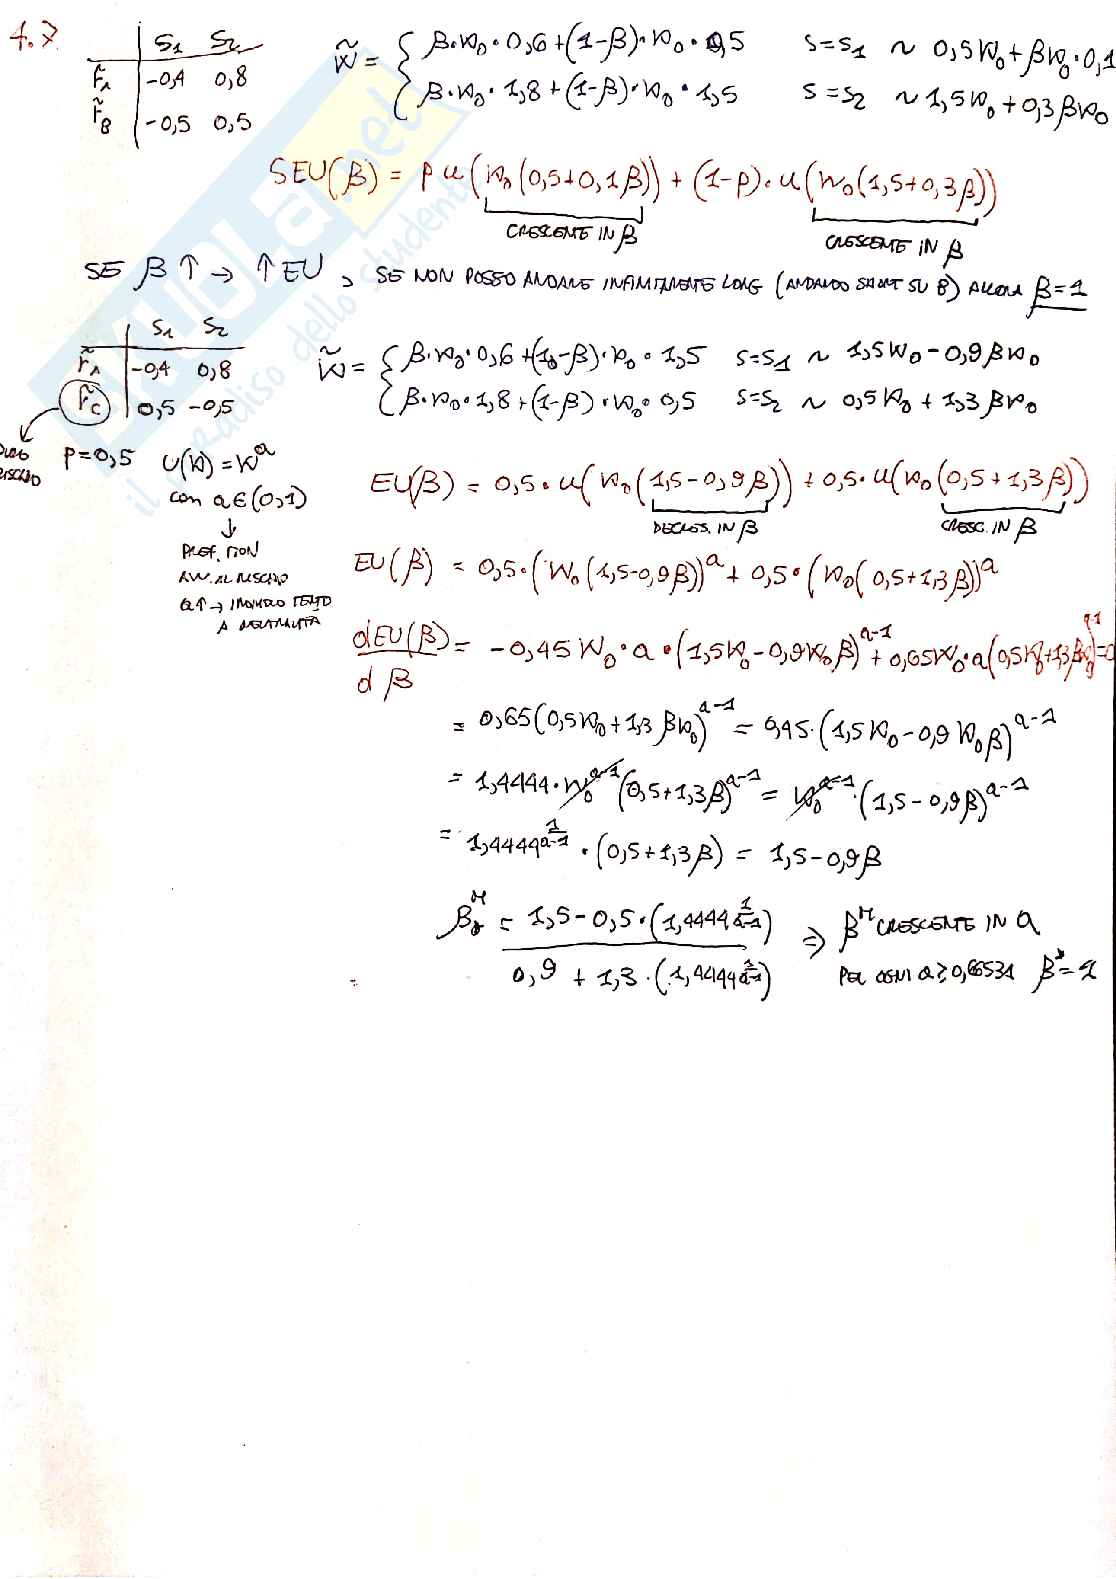 4.7
S1 S2
r̃A -0,4 0,8
r̃B -0,5 0,5
W̃ = { β·W0·0,6+(1-β)·W0·0,5 S=S1 ~ 0,5W0+βW0·0,1
β·W0·1,8+(1-β)·W0·1,5 S=S2 ~ 1,5W0+0,3βW0
SEU(β) = p u(W0(0,5+0,1β)) + (1-p)·u(W0(1,5+0,3β))
CRESCENTE IN β CRESCENTE IN β
SE β↑ → ↑EU, SE NON POSSO ANDARE INFINITAMENTE LONG (ANDANDO SHORT SU B) ALLORA β=1
S1 S2
r̃A -0,4 0,8
r̃C 0,5 -0,5
W̃ = { β·W0·0,6+(1-β)·W0·1,5 S=S1 ~ 1,5W0-0,9βW0
β·W0·1,8+(1-β)·W0·0,5 S=S2 ~ 0,5W0+1,3βW0
p=0,5 U(W)=W^a
con a∈(0,1)
PREF. NON
AVV. AL RISCHIO
a↑→ INDIVIDUO TENDO
A NEUTRALITÀ
EU(β) = 0,5·u(W0(1,5-0,9β)) + 0,5·u(W0(0,5+1,3β))
DECRES. IN β CRESC. IN β
EU(β) = 0,5·(W0(1,5-0,9β))^a + 0,5·(W0(0,5+1,3β))^a
dEU(β)/dβ = -0,45W0·a·(1,5W0-0,9W0β)^a-1 + 0,65W0·a(0,5W0+1,3βW0)^a-1=0
= 0,65(0,5W0+1,3βW0)^a-1 = 0,45·(1,5W0-0,9W0β)^a-1
= 1,4444·W0^a-1(0,5+1,3β)^a-1 = W0^a-1·(1,5-0,9β)^a-1
= 1,4444^1/a-1·(0,5+1,3β) = 1,5-0,9β
= 1,5-0,5·(1,4444^1/a-1) / 0,9+1,3·(1,4444^1/a-1) ⇒ CRESCENTE IN a
PER OGNI a≥0,66531 β*=1
SKUOLA.net
il paradiso dello studente